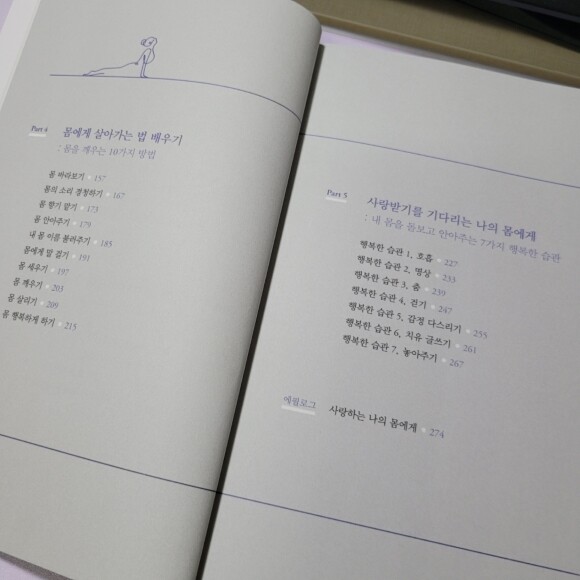 Part 4 몸에게 살아가는 법 배우기
: 몸을 깨우는 10가지 방법
몸 바라보기 157
몸의 소리 경청하기 167
몸 향기 맡기 173
몸 안아주기 179
내 몸 이름 불러주기 185
몸에게 말 걸기 191
몸 세우기 197
몸 깨우기 203
몸 살리기 209
몸 행복하게 하기 215
Part 5 사랑받기를 기다리는 나의 몸에게
: 내 몸을 돌보고 안아주는 7가지 행복한 습관
행복한 습관 1, 호흡 227
행복한 습관 2, 명상 233
행복한 습관 3, 춤 239
행복한 습관 4, 걷기 247
행복한 습관 5, 감정 다스리기 255
행복한 습관 6, 치유 글쓰기 261
행복한 습관 7, 놓아주기 267
에필로그 사랑하는 나의 몸에게 274